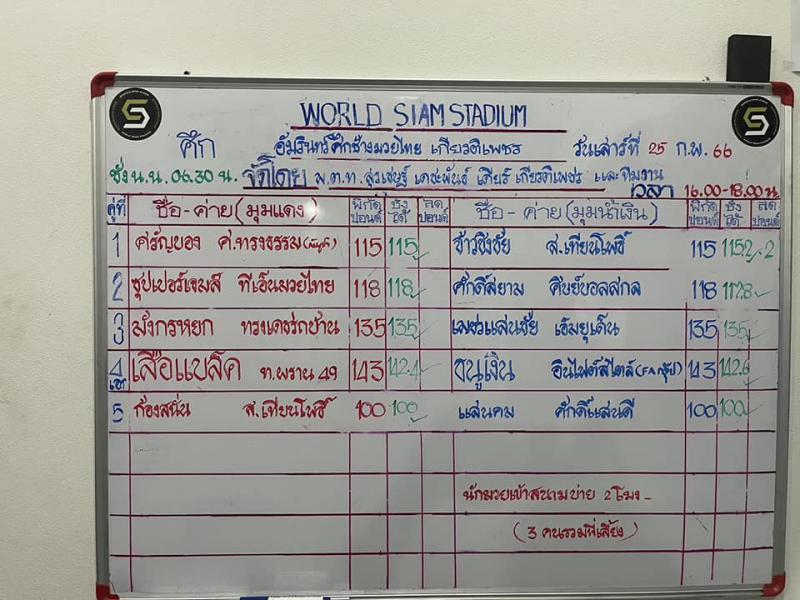 WORLD SIAM STADIUM
ศึก อัมรินทร์ศึกช้างมวยไทย เกียรติเพชร วันเสาร์ที่ 25 ก.พ. 66
ชั่ง น.น. 06.30 น. จัดโดย พ.ต.ท. สุรเชษฐ์ เดชะพันธ์ เสียร์ เกียรติเพชร และทีมงาน
เวลา 16.00-18.00 น.
คู่ที่ ชื่อ-ค่าย (มุมแดง) พิกัด ปอนด์ ชั่ง ได้ ลด ปอนด์ ชื่อ-ค่าย (มุมน้ำเงิน) พิกัด ปอนด์ ชั่ง ได้ ลด ปอนด์
1 ศรัญบอง ศ.ทรงธรรม 115 115 ข้าวซิงชัย ส.เทียนโพธิ์ 115 115.2 -2
2 ซุปเปอร์เจมส์ ทีเอ็นมวยไทย 118 118 ศักดิ์สยาม ศิษย์บอลสกล 118 117.8
3 มังกรหยก 135 135 เพชรแสนชัย เอ็มยูเด็น 135 135
4 เอก เสือแบล็ค ท.พราน 49 143 142.4 ธนูเงิน อินไฟต์สไตล์ 143 142.6
5 ก้องสนั่น ส.เทียนโพธิ์ 100 100 แสนคม ศักดิ์แสนดี 100 100
นักมวยเข้าสนามบ่าย 2 โมง -
(3 คนรวมพี่เลี้ยง)